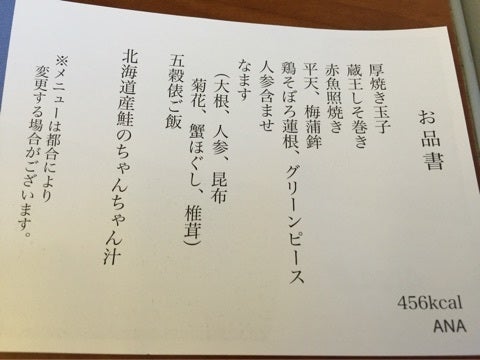 お品書
厚焼き玉子
蔵王しそ巻き
赤魚照焼き
平天、梅蒲鉾
鶏そぼろ蓮根、グリーンピース
人参含ませ
なます
（大根、人参、昆布
菊花、蟹ほぐし、椎茸）
五穀俵ご飯
北海道産鮭のちゃんちゃん汁
※メニューは都合により
変更する場合がございます。
456kcal
ANA